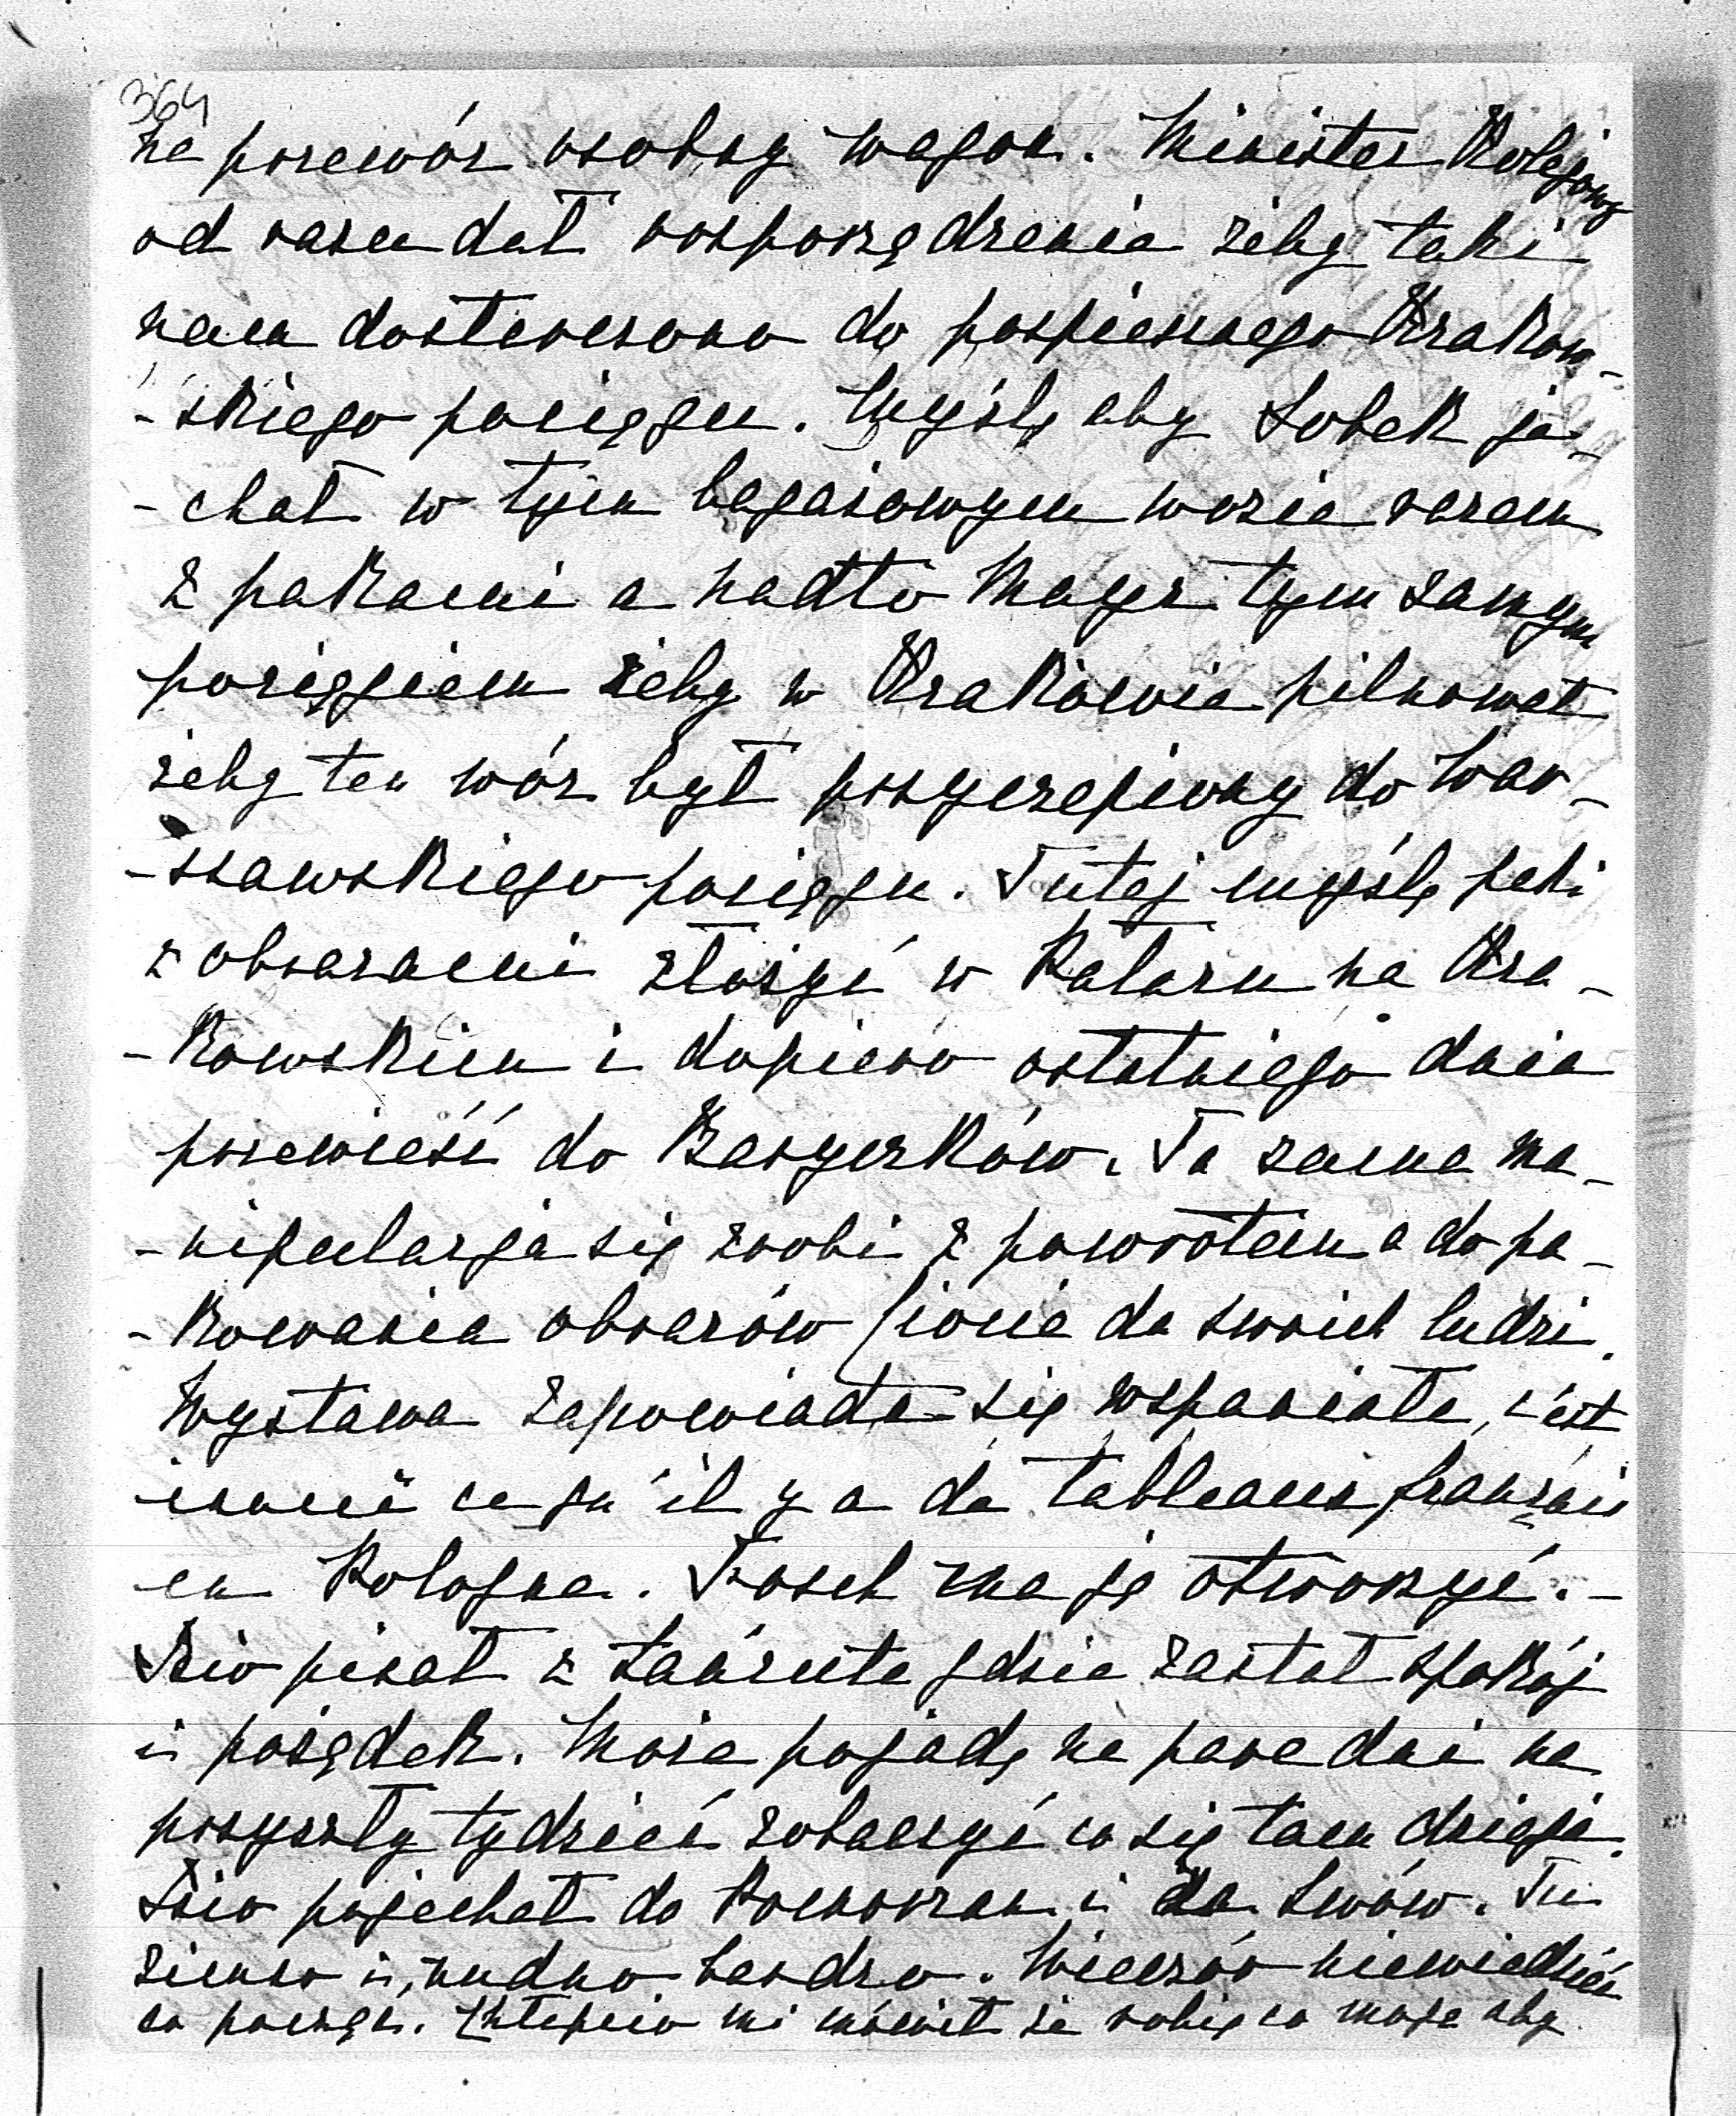 364
na przewóz osobny wagon. Minister Kolejowy
od razu dał rozporządzenie żeby taki
nam dostarczono do pospiesznego Krakow-
-skiego pociągu. Myślę aby Sobek ja-
-chał w tym bagażowym wozie razem
z pakami a nadto Mayr tym samym
pociągiem żeby w Krakowie pilnował
żeby ten wóz był przyczepiony do War-
-szawskiego pociągu. Tutaj myślę paki
z obrazami złożyć w Pałacu na Kra-
-kowskim i dopiero ostatniego dnia
przewieść do Baryczków. Ta sama ma-
-nipulacja się zrobi z powrotem a do pa-
-kowania obrazów da swoich ludzi.
Wystawa zapowiada się wspaniale, c'est
ce qu'il y a de tableaux français
en Pologne. Foch ma ją otworzyć. -
pisał z Łańcuta gdzie zastał spokój
i pożądek. Może pojadę na parę dni na
przyszły tydzień zobaczyć co się tam dzieje.
pojechał do i do Lwów. Tu
zimno i nudno bardzo. Wieczór niewiedzieć
co począć. mi mówił że robię co mogę aby